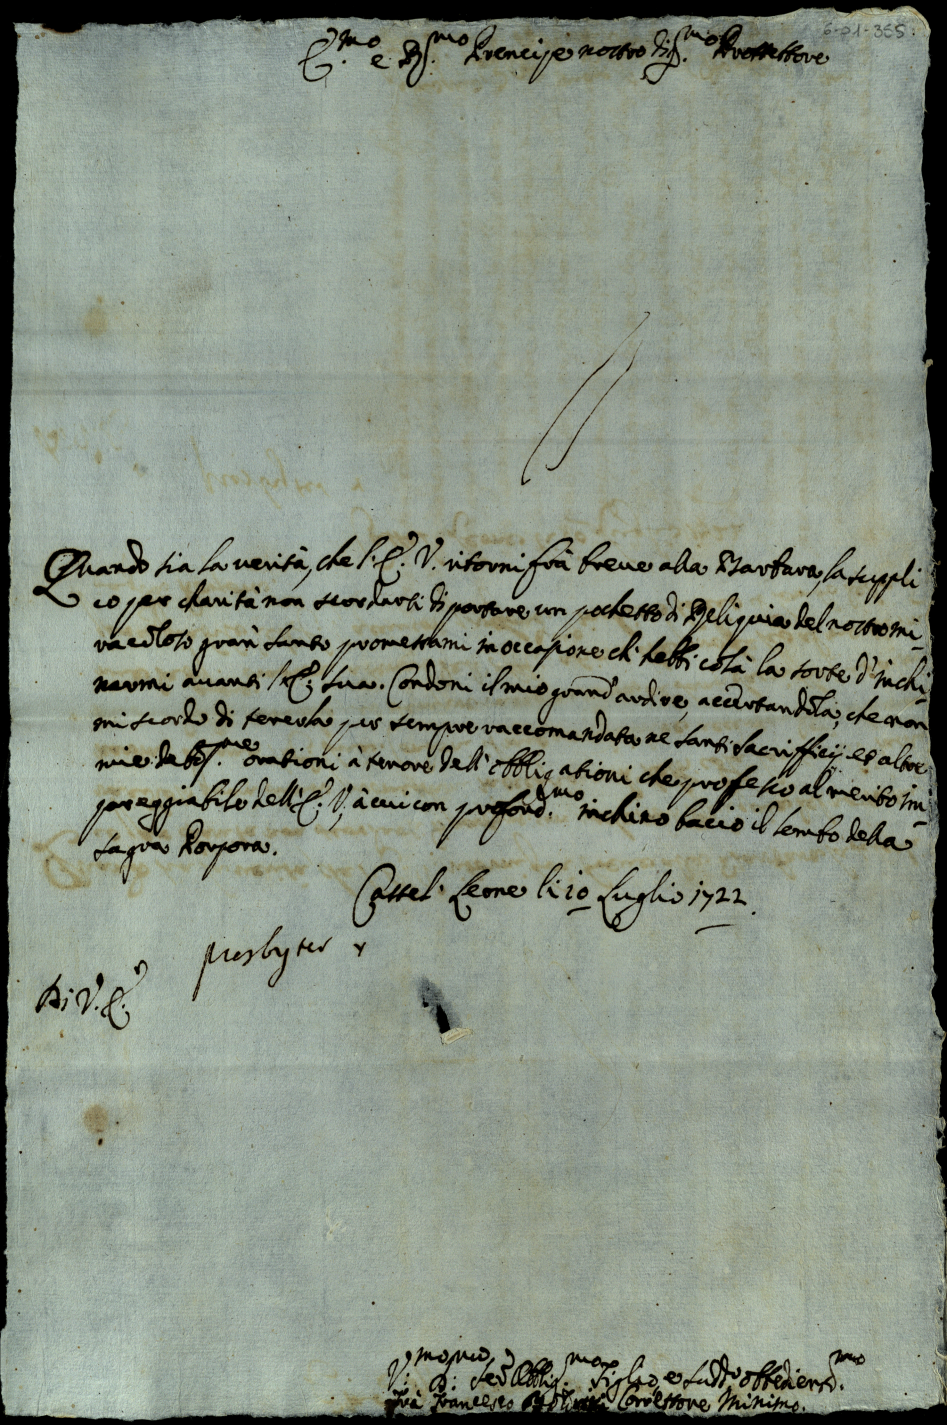 6-01-355.
E.mo e R.mo Prencipe nostro Sig.mo Prottettore
Quando sia la verità, che l'E. V. ritorni frà breve alla Barbara, la suppli
co per charità non scordarsi di portare un pochetto di Reliquia del nostro mi-
racoloso gran Santo promessami in occasione ch'hebbi costà la sorte d'inchi-
narmi avanti l'E. Sua. Condoni il mio grand'ardire, accertandola, che non
mi scordo di tenerla per sempre raccomandata ne santi sacriffícij et altre
mie debol.me orationi à tenore dell'obbligationi che professo al merito im-
pareggiabile dell'E. V., à cui con profond.mo inchino bacio il lembo della
sagra Porpora.
Castel Leone li 10 Luglio 1722.
presbyter
Di V. E.
V.mo Ser. Obblig.mo Figlio e Suddo obbedient.mo
Frà Francesco Correttore Minimo.